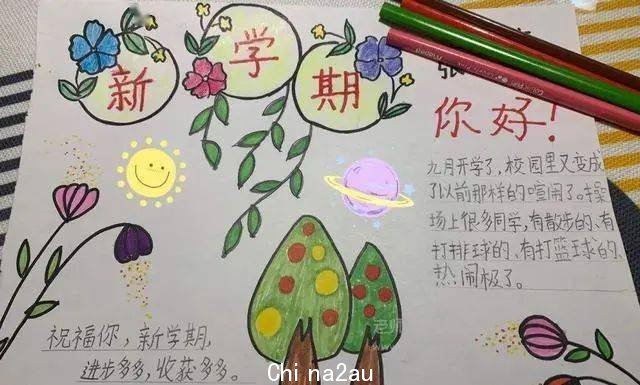 新学期
你好!
九月开学了,校园里又变成
了以前那样的喧闹了。操
场上很多同学,有散步的、有
打排球的、有打篮球的、
热闹极了。
祝福你,新学期,
进步多多,收获多多。
老师
Chi na2au